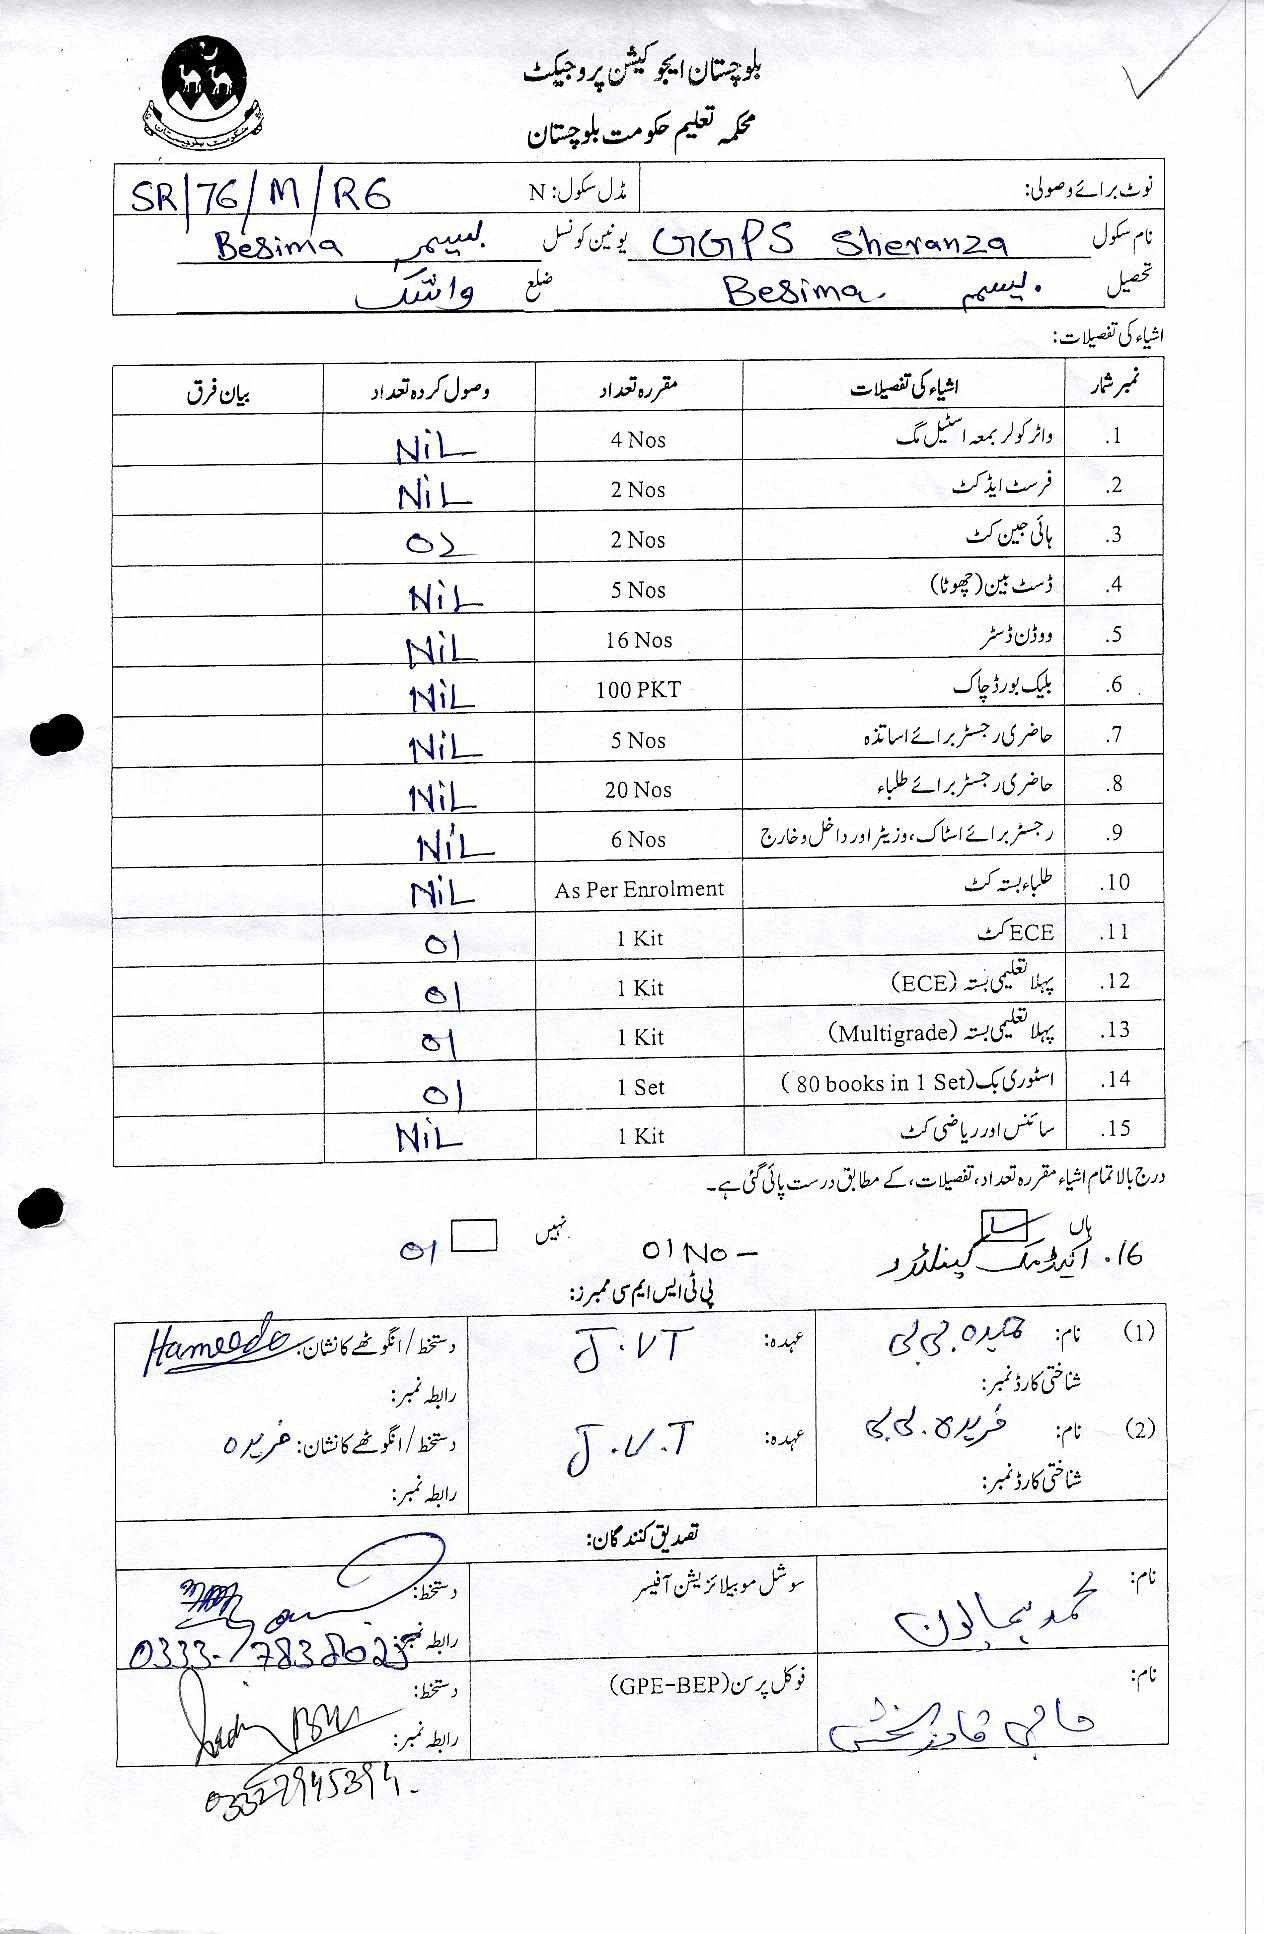 بلوچستان ایجوکیشن پروجیکٹ
محکمہ تعلیم حکومت بلوچستان
نوٹ برائے وصولی: مڈل سکول: N SR/76/M/R6
نام سکول GGPS Sheranza یونین کونسل بسیمہ Besima
تحصیل بسیمہ Besima ضلع واشک
اشیاء کی تفصیلات:
نمبر شمار اشیاء کی تفصیلات مقررہ تعداد وصول کردہ تعداد بیان فرق
1. واٹر کولر بمعہ اسٹیل مگ 4 Nos NiL
2. فرسٹ ایڈ کٹ 2 Nos NiL
3. ہائی جین کٹ 2 Nos 02
4. ڈسٹ بین (چھوٹا) 5 Nos NiL
5. ووڈن ڈسٹر 16 Nos NiL
6. بلیک بورڈ چاک 100 PKT NiL
7. حاضری رجسٹر برائے اساتذہ 5 Nos NiL
8. حاضری رجسٹر برائے طلباء 20 Nos NiL
9. رجسٹر برائے اسٹاک، وزیٹر اور داخل و خارج 6 Nos NiL
10. طلباء بستہ کٹ As Per Enrolment NiL
11. ECE کٹ 1 Kit 01
12. پہلا تعلیمی بستہ (ECE) 1 Kit 01
13. پہلا تعلیمی بستہ (Multigrade) 1 Kit 01
14. اسٹوری بک (80 books in 1 Set) 1 Set 01
15. سائنس اور ریاضی کٹ 1 Kit NiL
درج بالا تمام اشیاء مقررہ تعداد، تفصیلات، کے مطابق درست پائی گئی ہے۔
ہاں نہیں
16. اکیڈمک کیلنڈر 01 No – 01
پی ٹی ایس ایم سی ممبرز:
(1) نام: حمیدہ بی بی عہدہ: J.VT دستخط/انگوٹھے کا نشان: Hameeda
شناختی کارڈ نمبر: رابطہ نمبر:
(2) نام: فریدہ بی بی عہدہ: J.V.T دستخط/انگوٹھے کا نشان: فریدہ
شناختی کارڈ نمبر: رابطہ نمبر:
تصدیق کنندگان:
نام: محمد ہمایون سوشل موبیلائزیشن آفیسر دستخط:
رابطہ نمبر: 0333-7838025
نام: حاجی قادر بخش فوکل پرسن (GPE-BEP) دستخط:
رابطہ نمبر:
03327945394